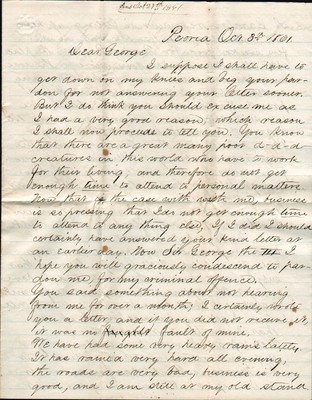 Peoria Oct 3rd 1861
Dear George
I suppose I shall have to
get down on my knees and beg your par-
don for not answering your letter sooner.
But I do think you should excuse me as
I had a very good reason, which reason
I shall now procede to tell you. You know
that there are a great many poor d-d-d
creatures in this world who have to work
for their living, and therefore do not get
enough time to attend to personal matters.
Now that is the case with me, business
is so pressing that I do not get enough time
to attend to any thing else, If I did I should
certainly have answered your kind letter at
an earlier day. Now Sir George the III I
hope you will graciously condescend to par-
don me for my criminal offence.
You said something about not hearing
from me for over a month, I certainly wrote
you a letter, and if you did not receive it,
it was no fault of mine.
We have had some very heavy rains lately.
It has rained very hard all evening,
the roads are very bad, business is very
good, and I am still at my old stand